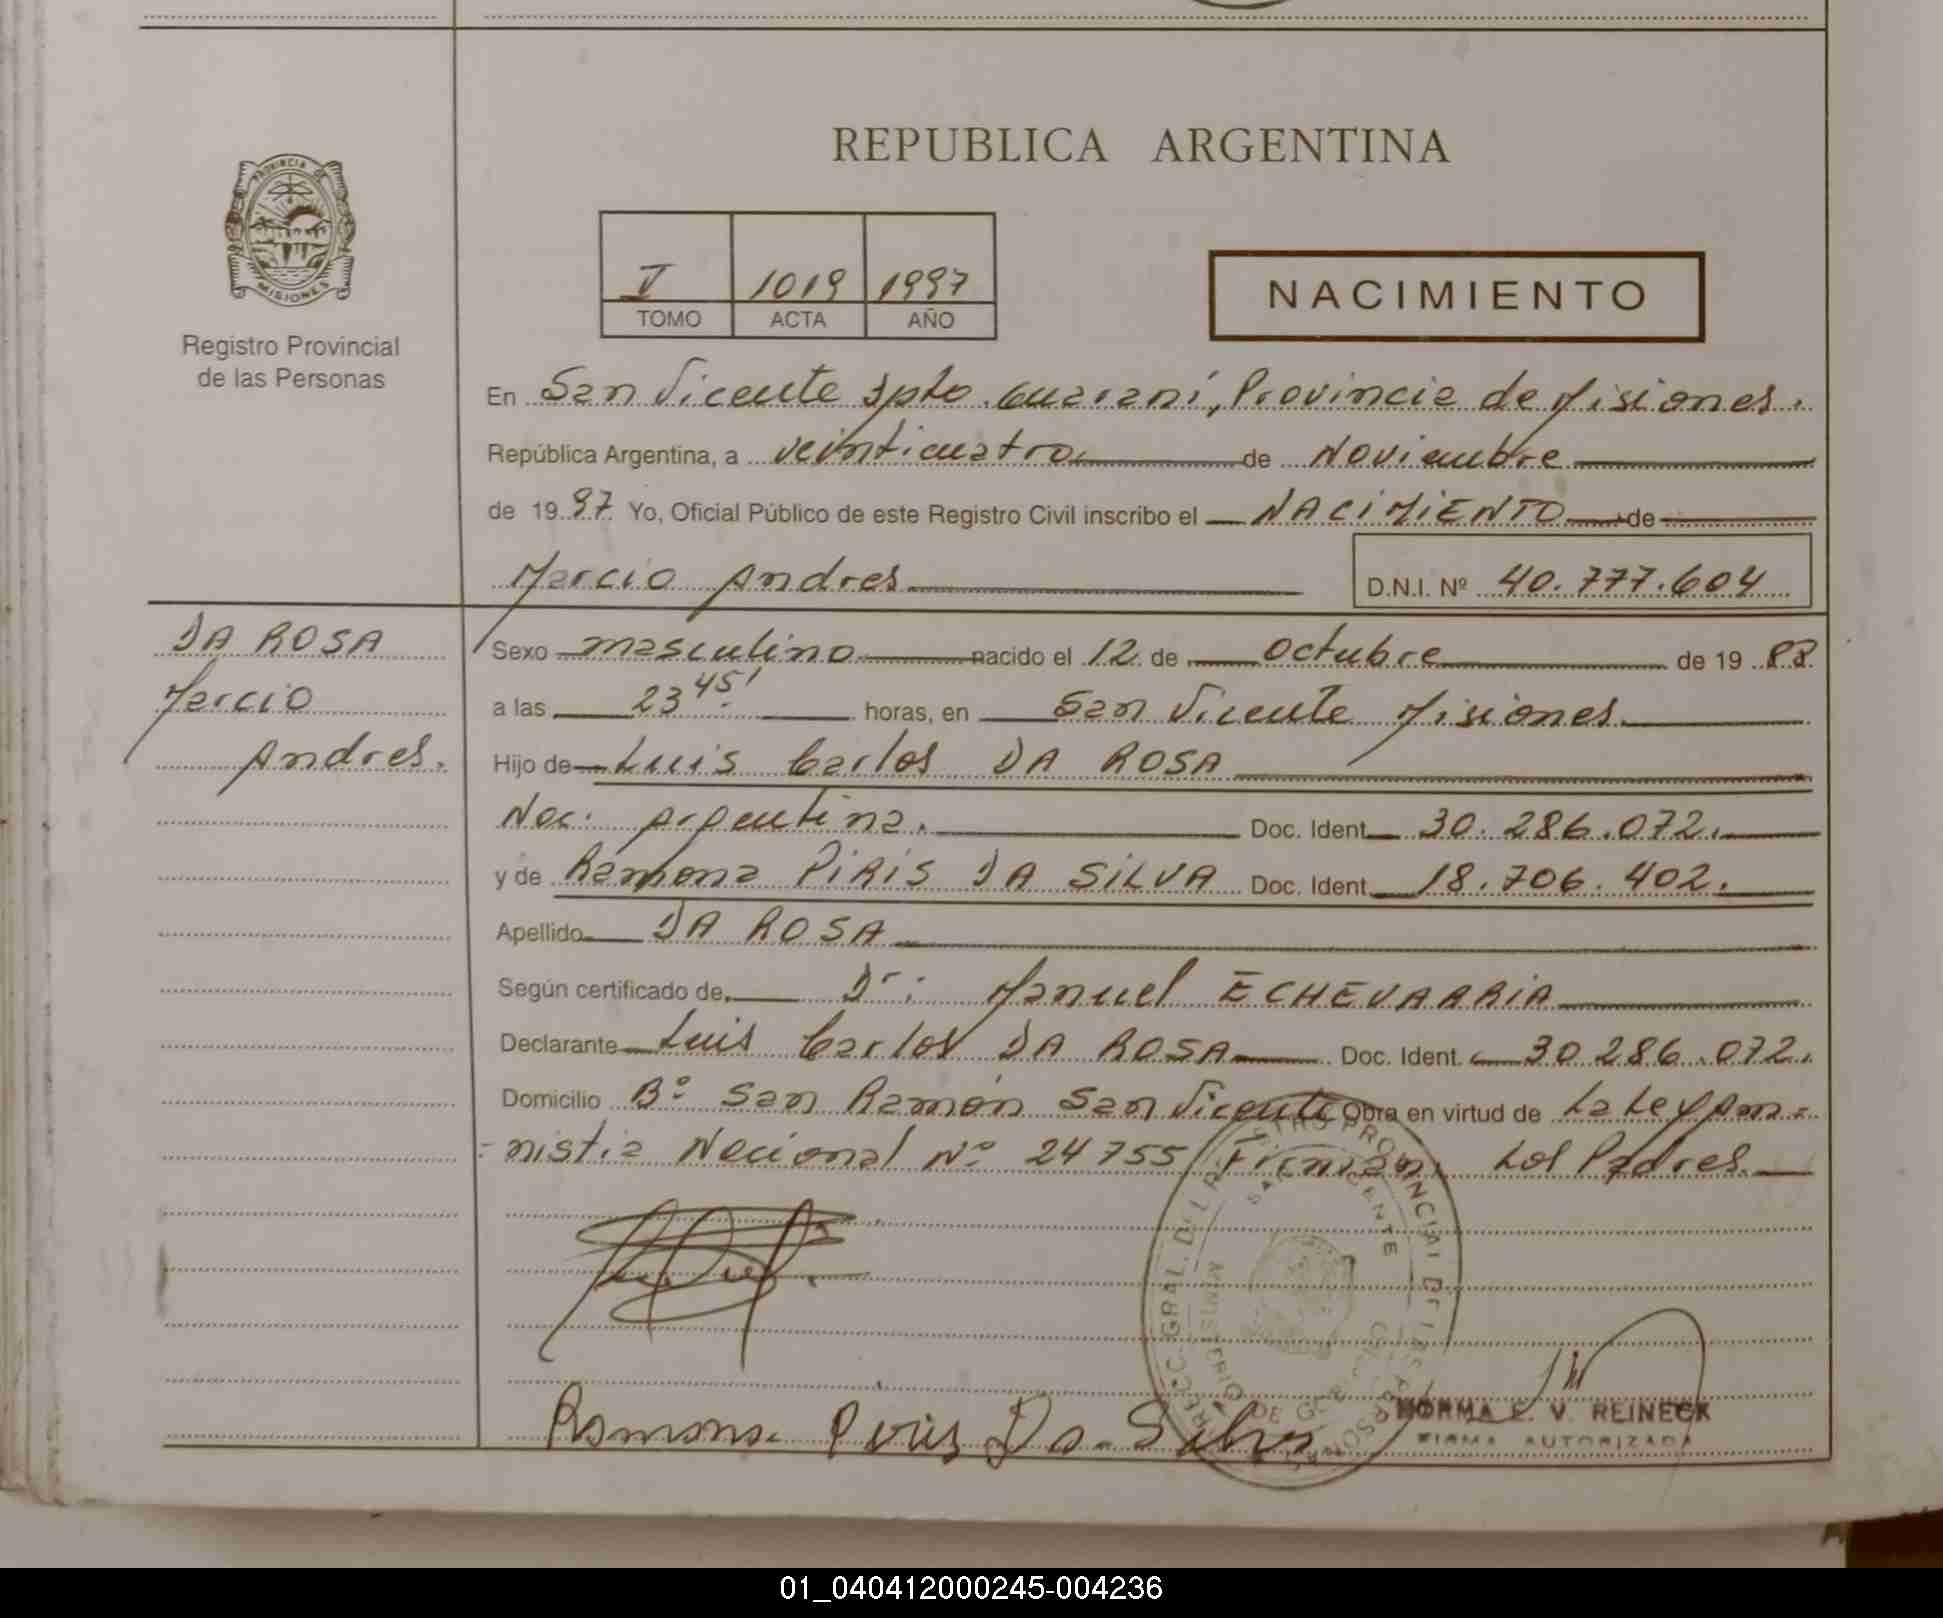 REPUBLICA ARGENTINA
PROVINCIA DE
MISIONES
Registro Provincial
de las Personas
V 1019 1997
TOMO ACTA AÑO
NACIMIENTO
En San Vicente Dpto. Guaraní, Provincia de Misiones.
República Argentina, a veinticuatro de Noviembre
de 1997 Yo, Oficial Público de este Registro Civil inscribo el NACIMIENTO de
Marcio Andres D.N.I. Nº 40.777.604
DA ROSA
Marcio
Andres.
Sexo masculino nacido el 12 de Octubre de 1988
a las 23 45' horas, en San Vicente Misiones
Hijo de Luis Carlos DA ROSA
Nac. Argentina. Doc. Ident. 30.286.072.
y de Ramona PIRIS DA SILVA Doc. Ident. 18.706.402.
Apellido DA ROSA
Según certificado de, Dr: Manuel ECHEVARRIA
Declarante Luis Carlos DA ROSA Doc. Ident. 30.286.072.
Domicilio Bº San Ramón San Vicente Obra en virtud de La Ley Am=
=nistia Nacional Nº 24755/ Firman Los Padres.
Ramona Piris Da Silva
SAN VICENTE
NORMA E. V. REINECK
FIRMA AUTORIZADA
01_040412000245-004236